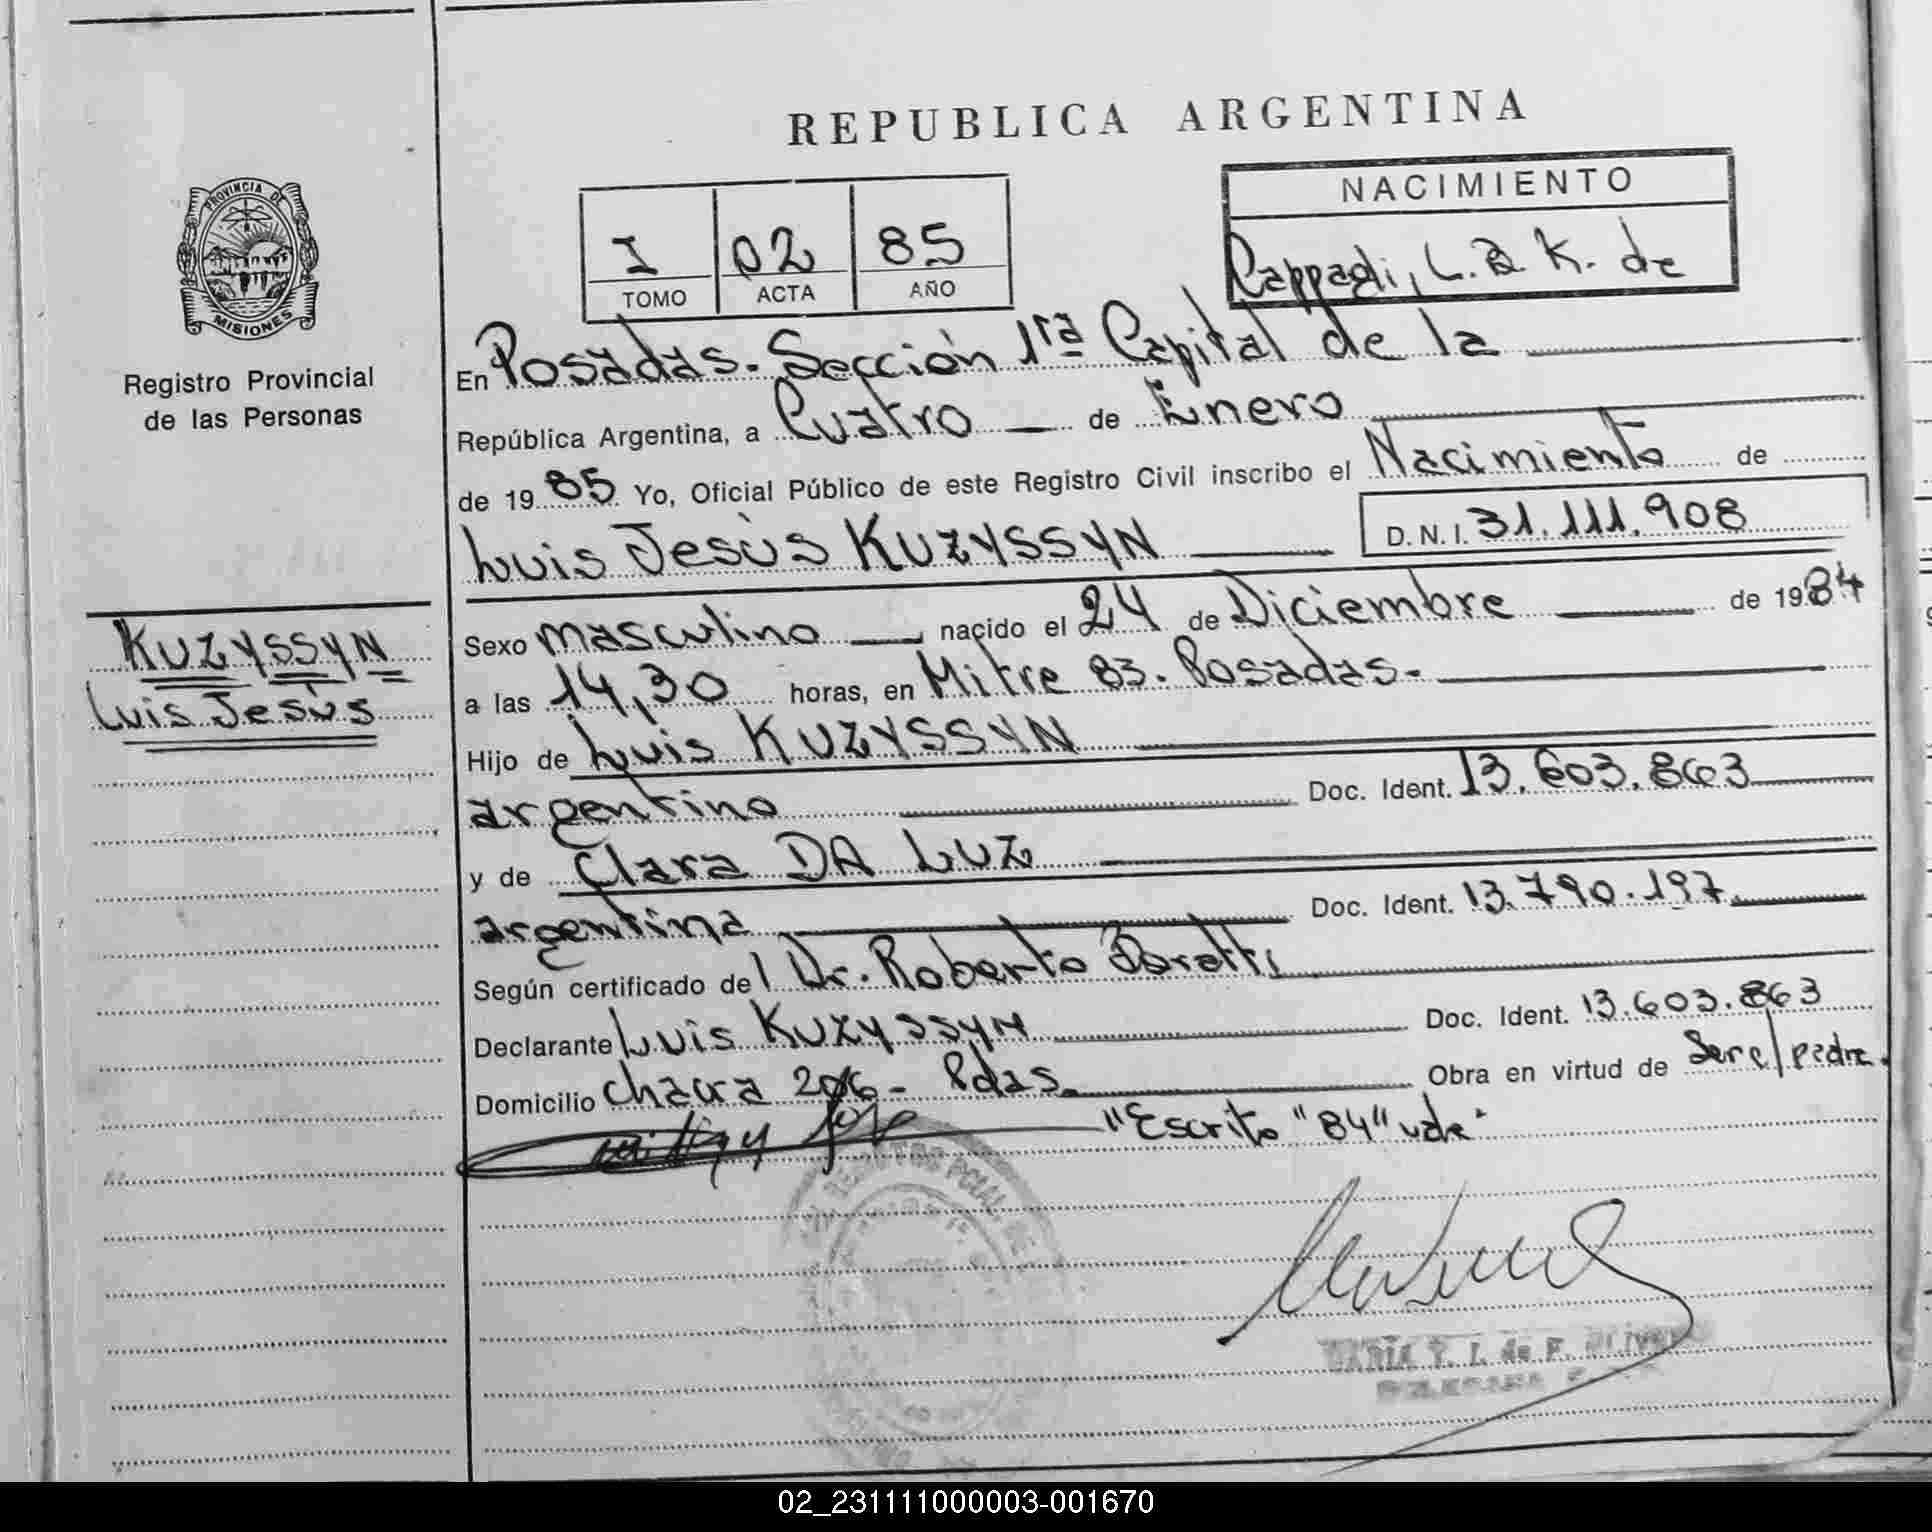 REPUBLICA ARGENTINA
PROVINCIA DE
MISIONES
Registro Provincial
de las Personas
I 02 85
TOMO ACTA AÑO
NACIMIENTO
Rappadi, L. B. K. de
En Posadas. Sección 1ra Capital de la
República Argentina, a Cuatro de Enero
de 19 85 Yo, Oficial Público de este Registro Civil inscribo el Nacimiento de
Luis Jesús KUZYSSYN D. N. I. 31.111.908
KUZYSSYN
Luis Jesús
Sexo masculino nacido el 24 de Diciembre de 19 84
a las 14,30 horas, en Mitre 83. Posadas.
Hijo de Luis KUZYSSYN
argentino Doc. Ident. 13.603.863
y de Clara DA LUZ
argentina Doc. Ident. 13.790.197
Según certificado del Dr. Roberto
Declarante Luis KUZYSSYN Doc. Ident. 13.603.863
Domicilio Chacra 206 - Pdas. Obra en virtud de Ser el padre.
"Escrito "84" vale"
MARIA T. I. de F.
02_231111000003-001670